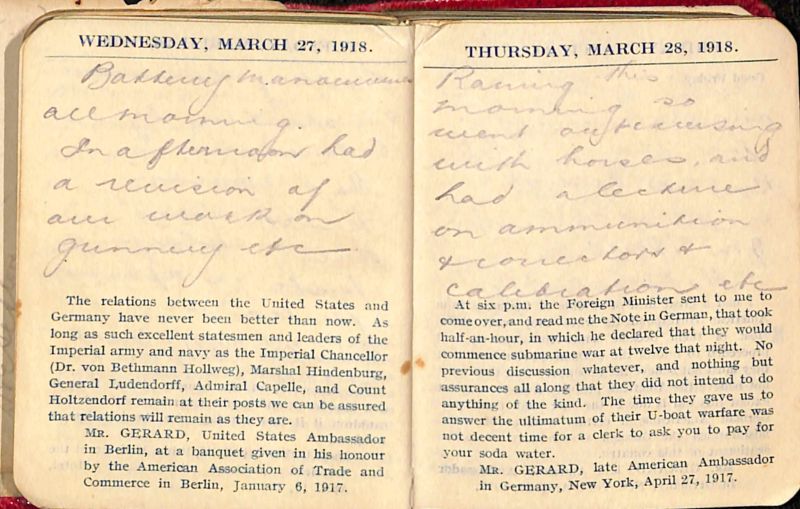 WEDNESDAY, MARCH 27, 1918.
Battery manoeuvres
all morning.
In afternoon had
a revision of
our work on
gunnery etc
The relations between the United States and
Germany have never been better than now. As
long as such excellent statesmen and leaders of the
Imperial army and navy as the Imperial Chancellor
(Dr. von Bethmann Hollweg), Marshal Hindenburg,
General Ludendorff, Admiral Capelle, and Count
Holtzendorf remain at their posts we can be assured
that relations will remain as they are.
MR. GERARD, United States Ambassador
in Berlin, at a banquet given in his honour
by the American Association of Trade and
Commerce in Berlin, January 6, 1917.
THURSDAY, MARCH 28, 1918.
Raining this
morning so
went out exercising
with horses, and
had a lecture
on ammunition
& correctors &
calibration etc
At six p.m. the Foreign Minister sent to me to
come over, and read me the Note in German, that took
half-an-hour, in which he declared that they would
commence submarine war at twelve that night. No
previous discussion whatever, and nothing but
assurances all along that they did not intend to do
anything of the kind. The time they gave us to
answer the ultimatum of their U-boat warfare was
not decent time for a clerk to ask you to pay for
your soda water.
MR. GERARD, late American Ambassador
in Germany, New York, April 27, 1917.